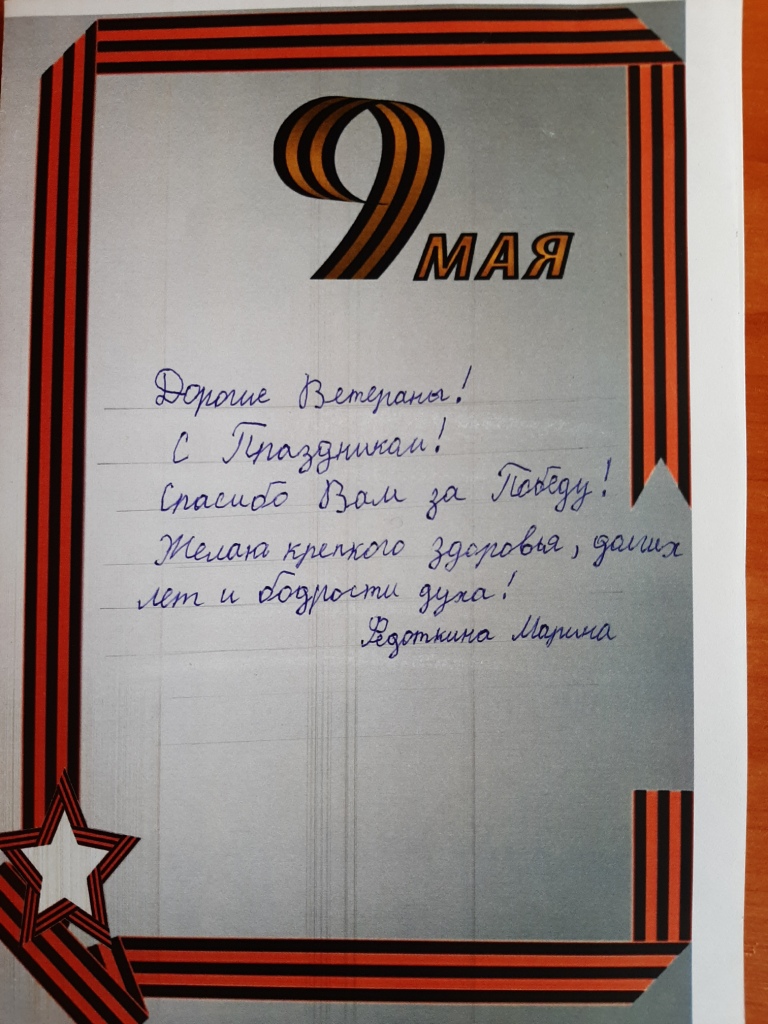 9 МАЯ
Дорогие Ветераны!
С Праздником!
Спасибо Вам за Победу!
Желаю крепкого здоровья, долгих
лет и бодрости духа!
Федоткина Марина